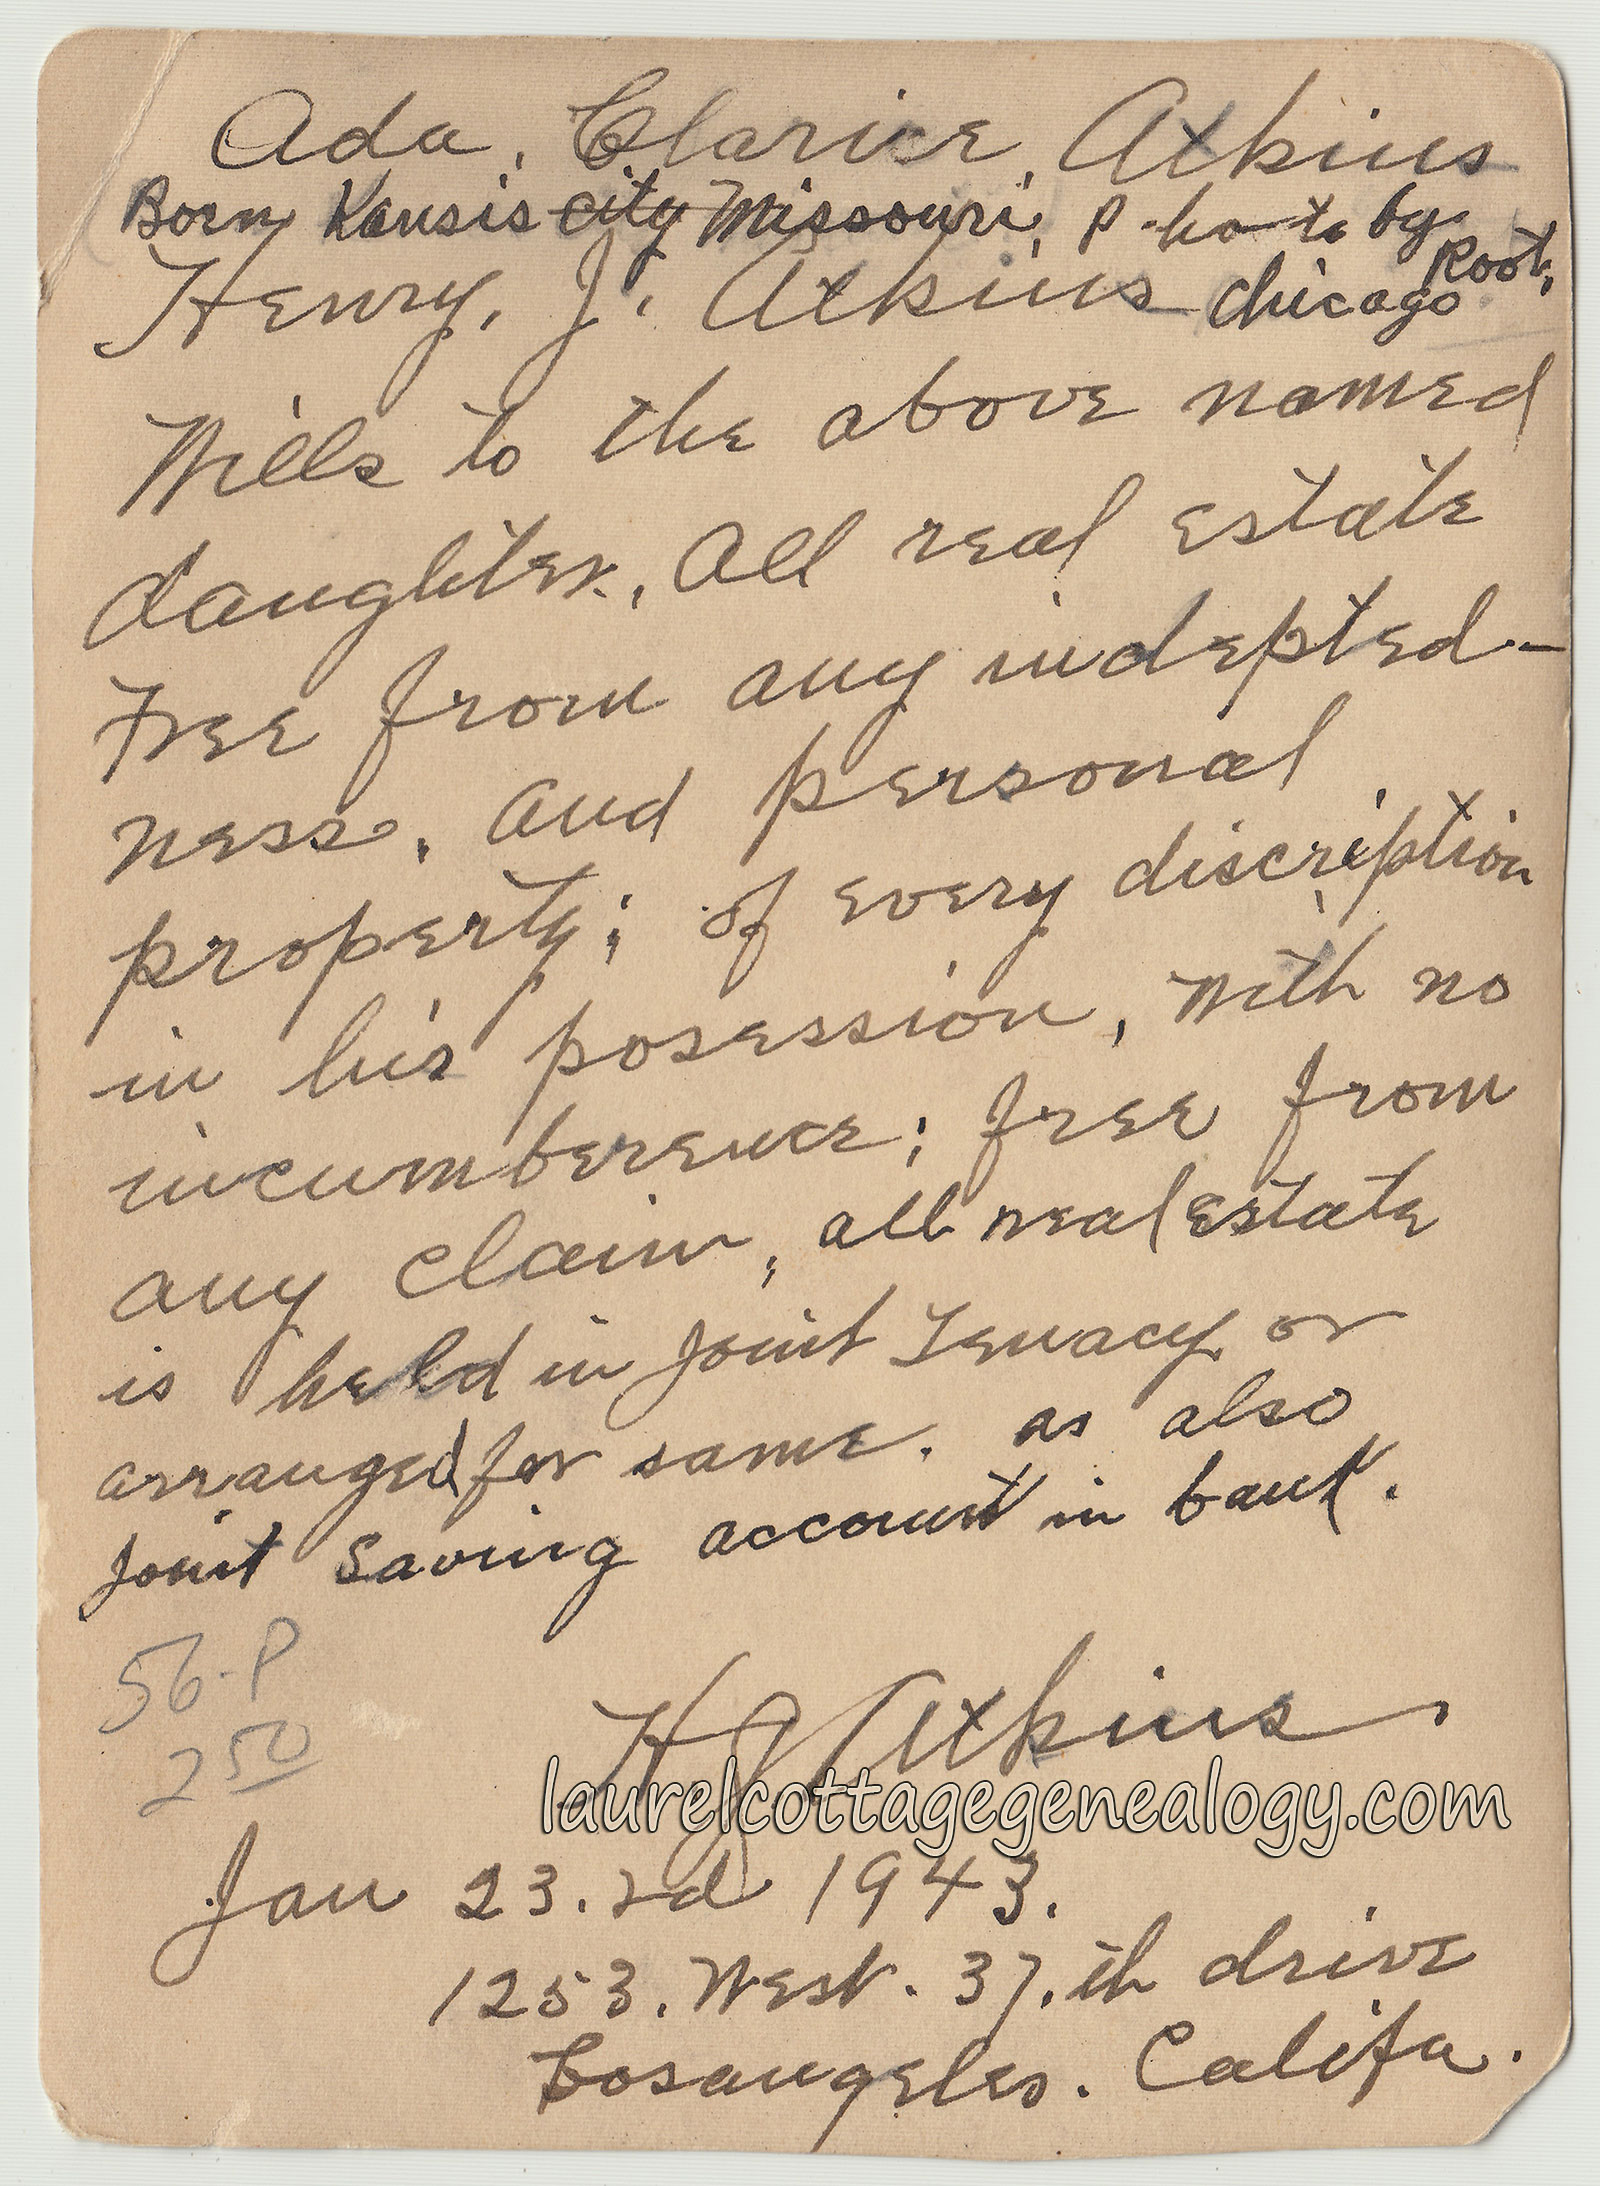 Ada, Clarice, Atkins
Born Kansis city Missouri, P-hoto by Root,
Henry, J, Atkins Chicago
Wills to the above named
daughter, All real estate
Free from any indepted-
ness, and personal
property; of every discription
in his posession, With no
incumberence; free from
any claim, all real estate
is held in Joint Tenacy or
arranged for same. as also
Joint Saving account in bank.
56-P
2 50
H J Atkins,
laurelcottagegenealogy.com
Jan 23.rd 1943.
1253. West. 37.th drive
Losangeles. Califa.